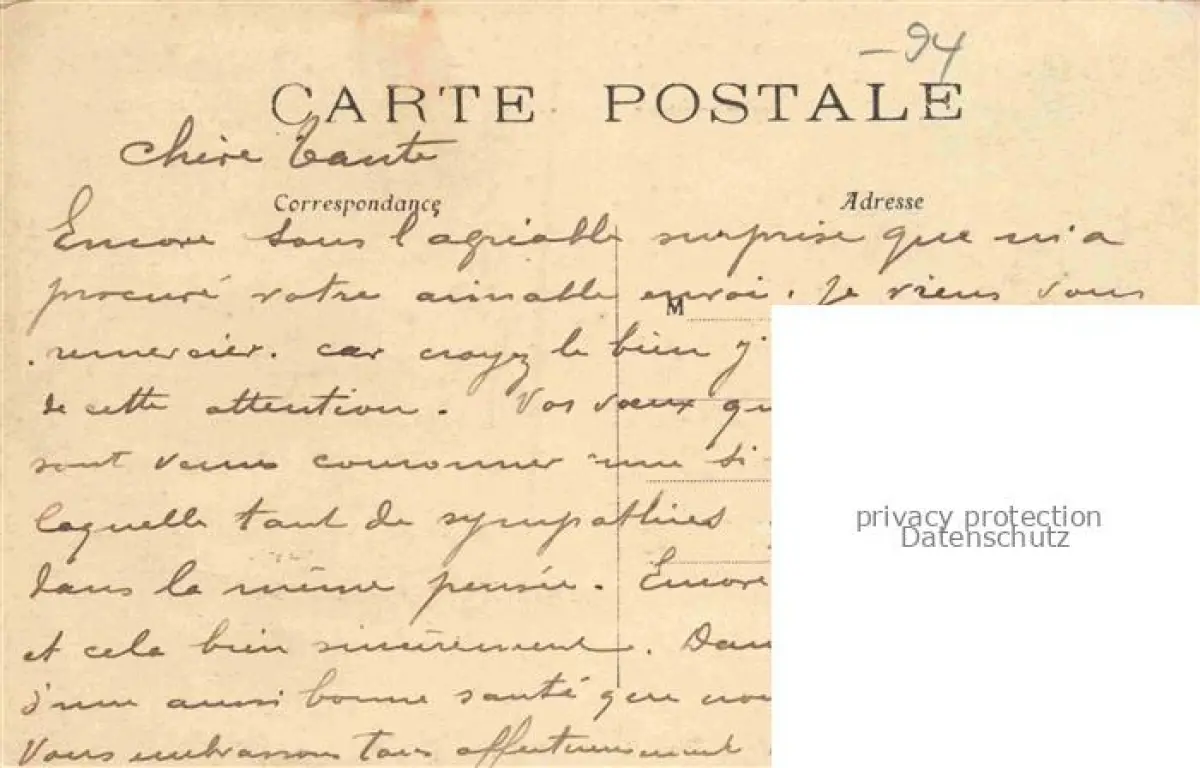 - 94
CARTE POSTALE
chère Tante
Correspondance
Adresse
Encore sous l'agréable surprise que m'a
procuré votre aimable envoi. Je viens vous
M
remercier. car croyez le bien j'
de cette attention. Vos vœux qu
sont venus couronner une si
laquelle tant de sympathies
dans la même pensée. Encore
et cela bien sincèrement. Dan
d'une aussi bonne santé que nou
Vous embrassons tous affectueusement
privacy protection
Datenschutz